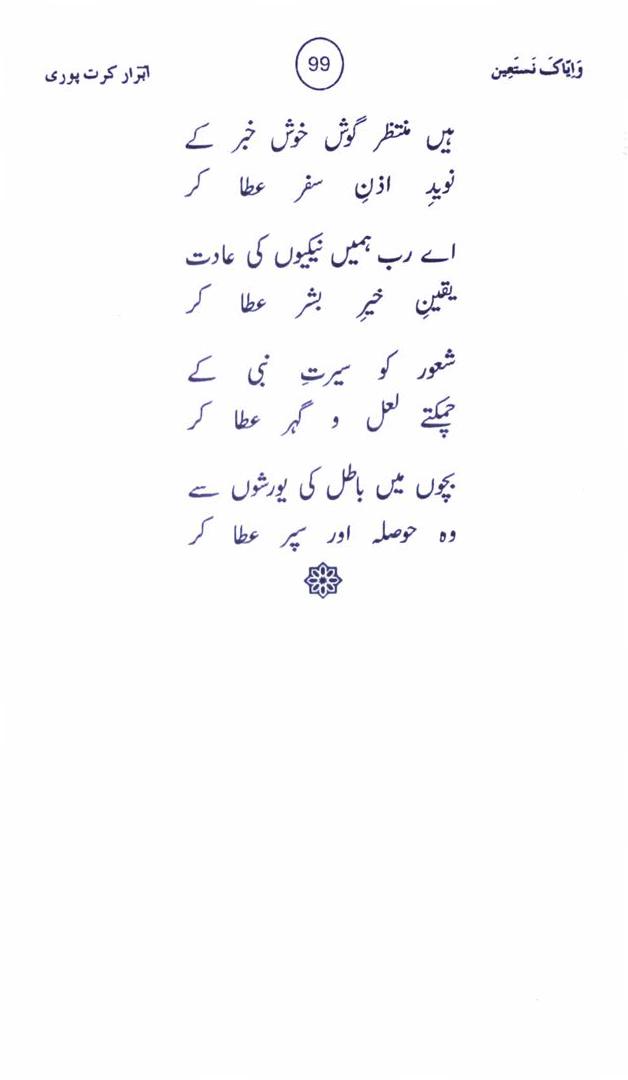 وَاِیّاکَ نَستَعِین 99 ابرار کرت پوری
ہیں منتظر گوش خوش خبر کے
نویدِ اذنِ سفر عطا کر
اے رب ہمیں نیکیوں کی عادت
یقینِ خیرِ بشر عطا کر
شعور کو سیرتِ نبی کے
چمکتے لعل و گہر عطا کر
بچوں میں باطل کی یورشوں سے
وہ حوصلہ اور سپر عطا کر